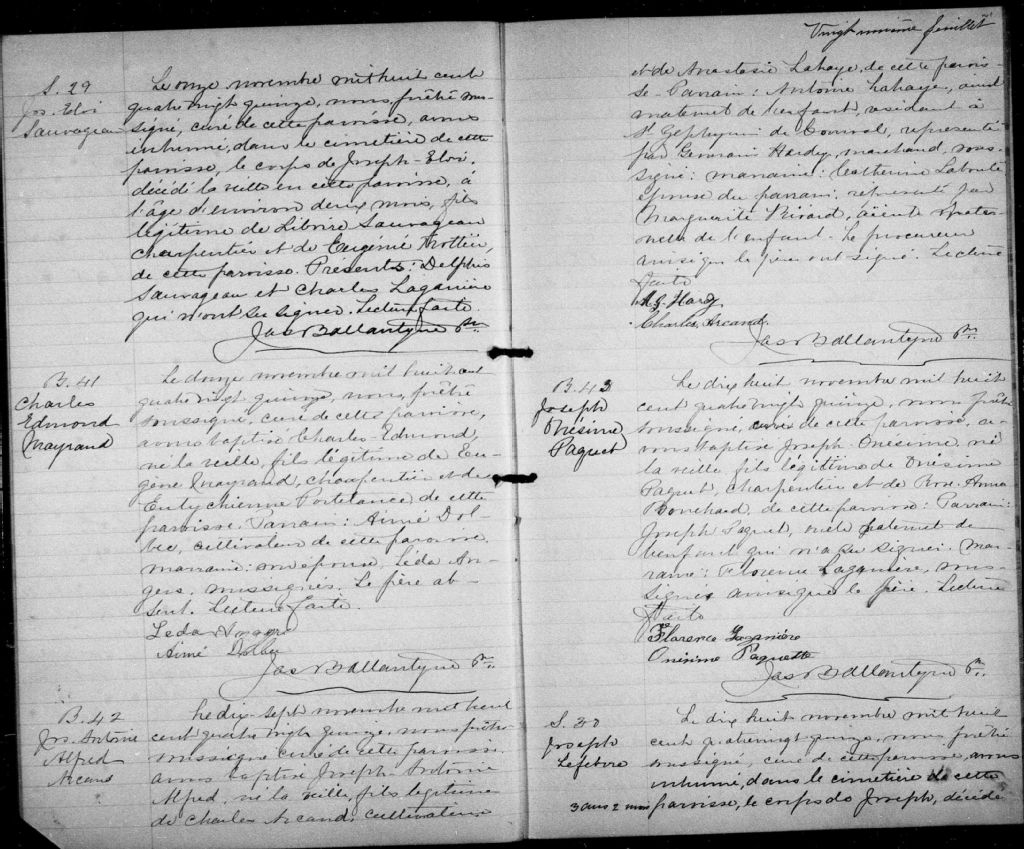 S. 29
Jos. Eloi
Sauvageau
Le onze novembre mil huit cent
quatre vingt quinze, nous, prêtre sous-
signé, curé de cette paroisse, avons
inhumé, dans le cimetière de cette
paroisse, le corps de Joseph-Eloi,
décédé la veille en cette paroisse, à
l'âge d'environ deux mois, fils
légitime de Liboire Sauvageau
charpentier et de Eugénie Trottier,
de cette paroisse. Présents: Delphis
Sauvageau et Charles Laganière
qui n'ont su signer. Lecture faite.
Jas Ballantyne Ptre
B. 41
Charles
Edmond
Mayrand
Le douze novembre mil huit cent
quatre vingt quinze, nous, prêtre
soussigné, curé de cette paroisse,
avons baptisé Charles-Edmond,
né la veille, fils légitime de Eu-
gène Mayrand, charpentier et de
Eutychienne Portelance de cette
paroisse. Parrain: Aimé Dol-
bec, cultivateur de cette paroisse,
marraine: son épouse, Léda An-
gers, soussignés. Le père ab-
sent. Lecture faite.
Leda Angers
Aimé Dolbec
Jas Ballantyne Ptre
B. 42
Jos. Antoine
Alfred
Arcand
Le dix-sept novembre mil huit
cent quatre vingt quinze, nous prêtre
soussigné curé de cette paroisse,
avons baptisé Joseph-Antoine
Alfred, né la veille, fils légitime
de Charles Arcand, cultivateur
Vingt unième feuillet
et de Anastasie Lahaye, de cette parois-
se. Parrain: Antoine Lahaye, aïeul
maternel de l'enfant, résidant à
St de représenté
par Germain Hardy, marchand, sous-
signé: marraine: Catherine Labouté
épouse du parrain, représenté par
Marguerite Rivard, aïeule mater-
nelle de l'enfant. Le procureur
ainsi que le père ont signé. Lecture
faite
M. G. Hardy
Charles Arcand.
Jas Ballantyne Ptre
B. 43
Joseph
Onésime
Paquet
Le dix huit novembre mil huit
cent quatre vingt quinze, nous prêtre
soussigné, curé de cette paroisse, a-
vons baptisé Joseph-Onésime, né
la veille, fils légitime de Onésime
Paquet, charpentier et de Rose-Anna
Bouchard, de cette paroisse: Parrain:
Joseph Paquet, oncle paternel de
l'enfant qui n'a su signer. Mar-
raine: Florence Laganière, sous-
signée ainsi que le père. Lecture
faite
Florence Laganière
Onésime Paquette
Jas Ballantyne Ptre
S. 30
Joseph
Lefebvre
3 ans 2 mois
Le dix huit novembre mil huit
cent quatrevingt quinze, nous prêtre
soussigné, curé de cette paroisse, avons
inhumé, dans le cimetière de cette
paroisse, le corps de Joseph, décédé